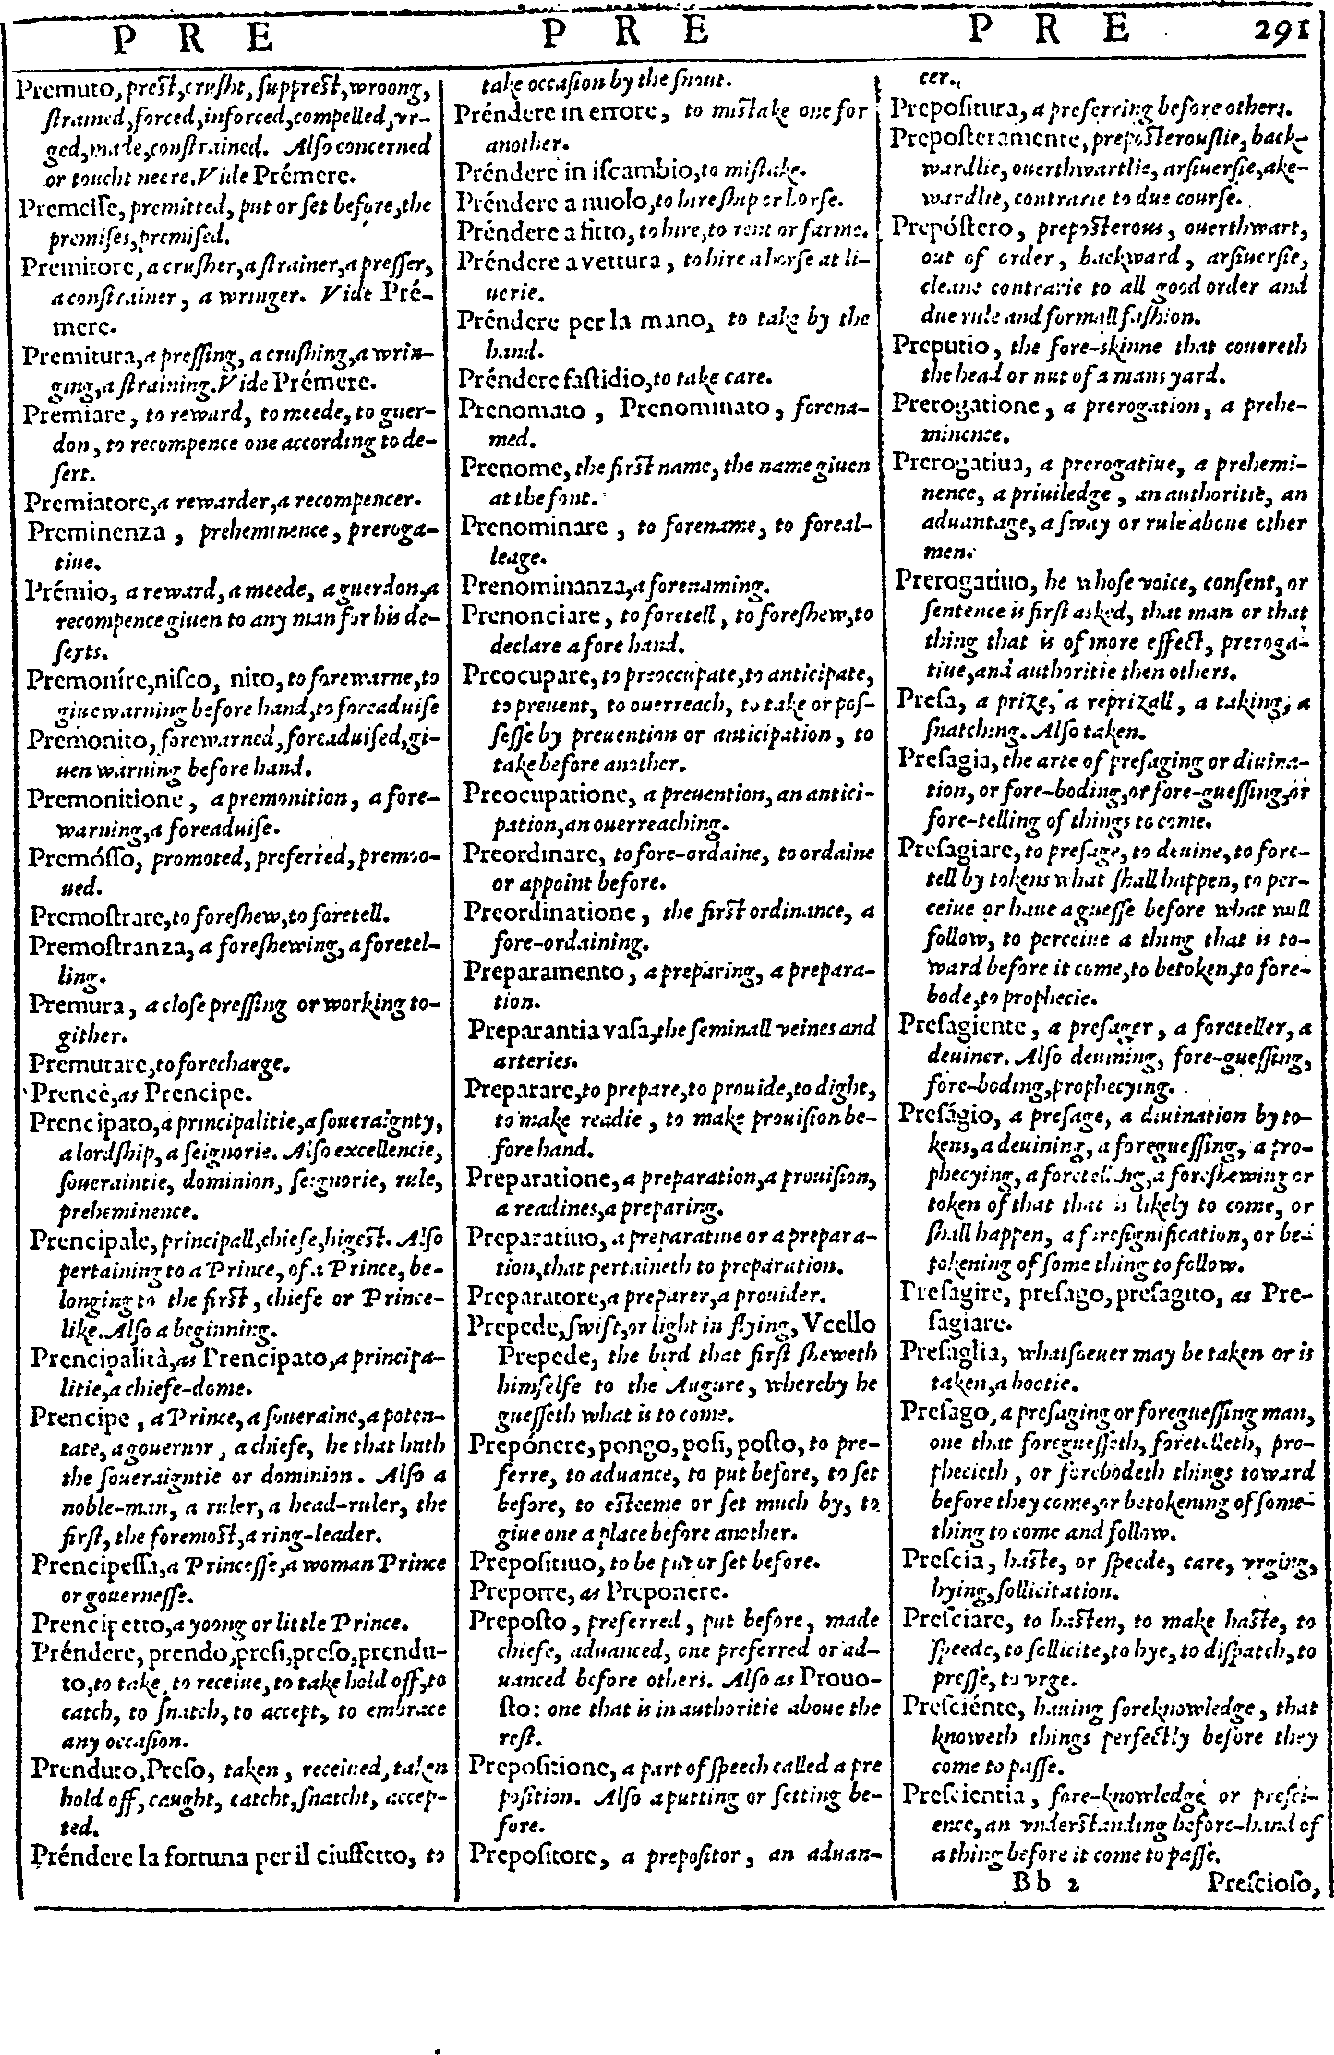 P R E P R E P R E 291
Premuto, prest, crusht, supprest, wroong,
strained, forced, inforced, compelled, vr-
ged, made, constrained. Also concerned
or toucht neere. Vide Prémere.
Premeise, premitted, put or set before, the
premises, premised.
Premitore, a crusher, a strainer, a presser,
a constrainer, a wringer. Vide Pré-
mere.
Premitura, a pressing, a crushing, a wrin-
ging, a straining. Vide Prémere.
Premiare, to reward, to meede, to guer-
don, to recompence one according to de-
sert.
Premiatore, a rewarder, a recompencer.
Preminenza, preheminence, preroga-
tiue.
Prémio, a reward, a meede, a guerdon, a
recompence giuen to any man for his de-
serts.
Premoníre, nisco, nito, to forewarne, to
giue warning before hand, to foreaduise
Premonito, forewarned, foreaduised, gi-
uen warning before hand.
Premonitione, a premonition, a fore-
warning, a foreaduise.
Premósso, promoted, preferred, premoo-
ued.
Premostrare, to foreshew, to foretell.
Premostranza, a foreshewing, a foretel-
ling.
Premura, a close pressing or working to-
gither.
Premutare, to forecharge.
Prence, as Prencipe.
Prencipato, a principalitie, a soueraignty,
a lordship, a seignorie. Also excellencie,
soueraintie, dominion, seignorie, rule,
preheminence.
Prencipale, principall, chiefe, higest. Also
pertaining to a Prince, of a Prince, be-
longing to the first, chiefe or Prince-
like. Also a beginning.
Prencipalità, as Prencipato, a principa-
litie, a chiefe-dome.
Prencipe, a Prince, a soueraine, a poten-
tate, a gouernor, a chiefe, he that hath
the soueraigntie or dominion. Also a
noble-man, a ruler, a head-ruler, the
first, the foremost, a ring-leader.
Prencipessa, a Princesse, a woman Prince
or gouernesse.
Prencipetto, a yoong or little Prince.
Préndere, prendo, presi, preso, prendu-
to, to take, to receiue, to take hold off, to
catch, to snatch, to accept, to embrace
any occasion.
Prenduto, Preso, taken, receiued, taken
hold off, caught, catcht, snatcht, accep-
ted.
Préndere la fortuna per il ciuffetto, to
take occasion by the snout.
Préndere in errore, to mistake one for
another.
Préndere in iscambio, to mistake.
Préndere a nuolo, to hire ship or horse.
Préndere a fitto, to hire, to rent or farme.
Préndere a vettura, to hire a horse at li-
uerie.
Préndere per la mano, to take by the
hand.
Préndere fastidio, to take care.
Prenomato, Prenominato, forena-
med.
Prenome, the first name, the name giuen
at the font.
Prenominare, to forename, to foreal-
leage.
Prenominanza, a forenaming.
Prenonciare, to foretell, to foreshew, to
declare afore hand.
Preocupare, to preoccupate, to anticipate,
to preuent, to ouerreach, to take or pos-
sesse by preuention or anticipation, to
take before another.
Preocupatione, a preuention, an antici-
pation, an ouerreaching.
Preordinare, to fore-ordaine, to ordaine
or appoint before.
Preordinatione, the first ordinance, a
fore-ordaining.
Preparamento, a preparing, a prepara-
tion.
Preparantia vasa, the seminall veines and
arteries.
Preparare, to prepare, to prouide, to dight,
to make readie, to make prouision be-
fore hand.
Preparatione, a preparation, a prouision,
a readines, a preparing.
Preparatiuo, a preparatiue or a prepara-
tion, that pertaineth to preparation.
Preparatore, a preparer, a prouider.
Prepede, swift, or light in flying, Vcello
Prepede, the bird that first sheweth
himselfe to the Augure, whereby he
guesseth what is to come.
Prepónere, pongo, posi, posto, to pre-
ferre, to aduance, to put before, to set
before, to esteeme or set much by, to
giue one a place before another.
Prepositiuo, to be put or set before.
Preporre, as Preponere.
Preposto, preferred, put before, made
chiefe, aduanced, one preferred or ad-
uanced before others. Also as Prouo-
sto: one that is in authoritie aboue the
rest.
Prepositione, a part of speech called a pre
position. Also a putting or setting be-
fore.
Prepositore, a prepositor, an aduan-
cer.
Prepositura, a preferring before others.
Preposteramente, preposterouslie, back-
wardlie, ouerthwartlie, arsiuersie, ake-
wardlie, contrarie to due course.
Prepóstero, preposterous, ouerthwart,
out of order, backward, arsiuersie,
cleane contrarie to all good order and
due rule and formall fashion.
Preputio, the fore-skinne that couereth
the head or nut of a mans yard.
Prerogatione, a prerogation, a prehe-
minence.
Prerogatiua, a prerogatiue, a prehemi-
nence, a priuiledge, an authoritie, an
aduantage, a sway or rule aboue other
men.
Prerogatiuo, he whose voice, consent, or
sentence is first asked, that man or that
thing that is of more effect, preroga-
tiue, and authoritie then others.
Presa, a prize, a reprizall, a taking, a
snatching. Also taken.
Presagia, the arte of presaging or diuina-
tion, or fore-boding, or fore-guessing, or
fore-telling of things to come.
Presagiare, to presage, to deuine, to fore-
tell by tokens what shall happen, to per-
ceiue or haue a guesse before what will
follow, to perceiue a thing that is to-
ward before it come, to betoken, to fore-
bode, to prophecie.
Presagiente, a presager, a foreteller, a
deuiner. Also deuining, fore-guessing,
fore-boding, prophecying.
Preságio, a presage, a diuination by to-
kens, a deuining, a foreguessing, a pro-
phecying, a foretelling, a foreshewing or
token of that that is likely to come, or
shall happen, a foresignification, or be-
tokening of some thing to follow.
Presagire, presago, presagito, as Pre-
sagiare.
Presaglia, whatsoeuer may be taken or is
taken, a bootie.
Presago, a presaging or foreguessing man,
one that foreguesseth, foretelleth, pro-
phecieth, or forebodeth things toward
before they come, or betokening of some-
thing to come and follow.
Prescia, haste, or speede, care, vrging,
hying, sollicitation.
Presciare, to hasten, to make haste, to
speede, to sollicite, to hye, to dispatch, to
presse, to vrge.
Presciénte, hauing foreknowledge, that
knoweth things perfectly before they
come to passe.
Prescientia, fore-knowledge or presci-
ence, an vnderstanding before-hand of
a thing before it come to passe.
Bb 2 Prescioso,